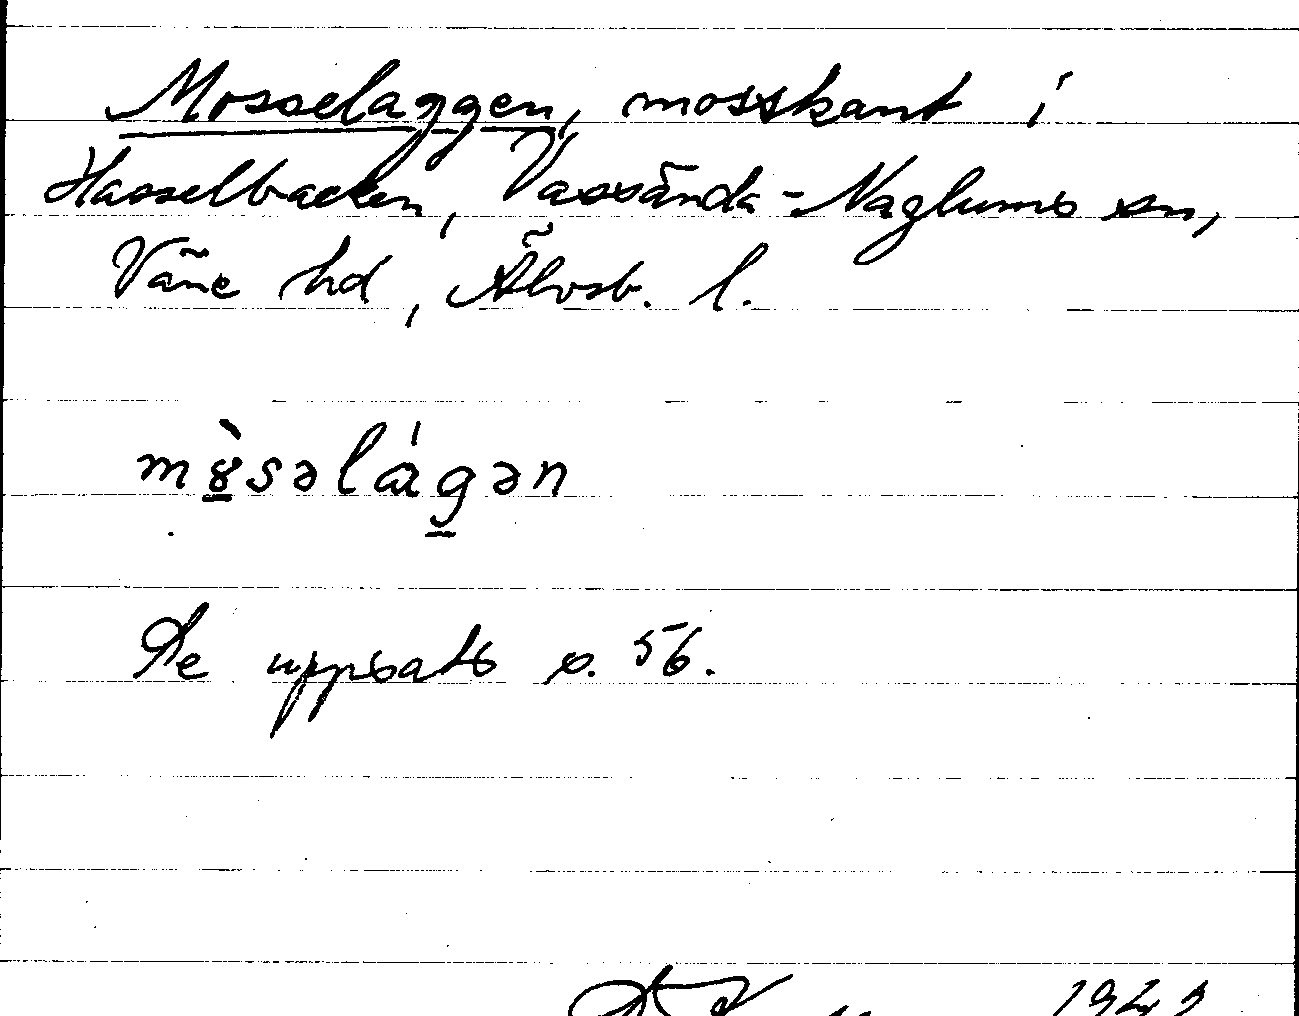 Mosselaggen, mosskant i
Hasselbacken, Vassända-Naglums sn,
Väne hd, Älvsb. l.
m8̲̀səlágə̲n
Se uppsats s. 56.